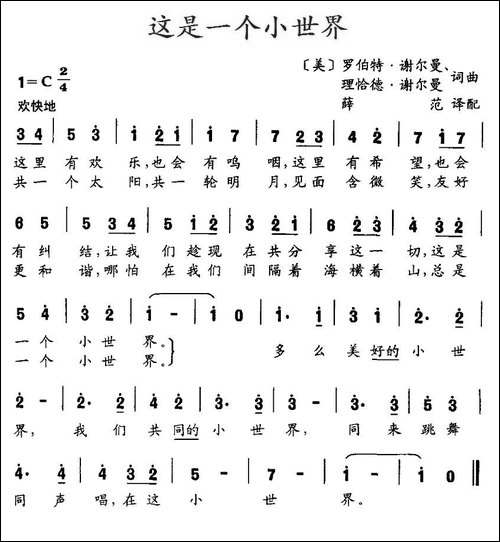 这是一个小世界
1=C 2/4
〔美〕罗伯特·谢尔曼、
理恰德·谢尔曼 词曲
欢快地
薛 范 译配
3 4 | 5 3 | 1 2 1 | 1 7 | 7 2 3 | 4 2 | 7 1 2 |
这里 有欢 乐,也会 有呜 咽,这里 有希 望,也会
共一 个太 阳,共一 轮明 月,见面 含微 笑,友好
6 5 | 5 3 4 | 5 1 2 | 3 2 1 | 6 2 3 | 4 3 2 |
有纠 结,让我 们趁现 在共分 享这一 切,这是
更和 谐,哪怕 在我们 间隔着 海横着 山,总是
5 4 | 3 2 | 1 - | 1 0 | 1· 1 | 3 1 | 2· 2 |
一个 小世 界。
一个 小世 界。} 多么美好的小世
2 - | 2· 2 | 4 2 | 3· 3 | 3 - | 3· 3 | 5 3 |
界, 我们共同的小世界, 同来跳舞
4· 4 | 4 3 2 | 5 - | 7 - | 1 - | 1 0 ‖
同声唱,在这小世界。